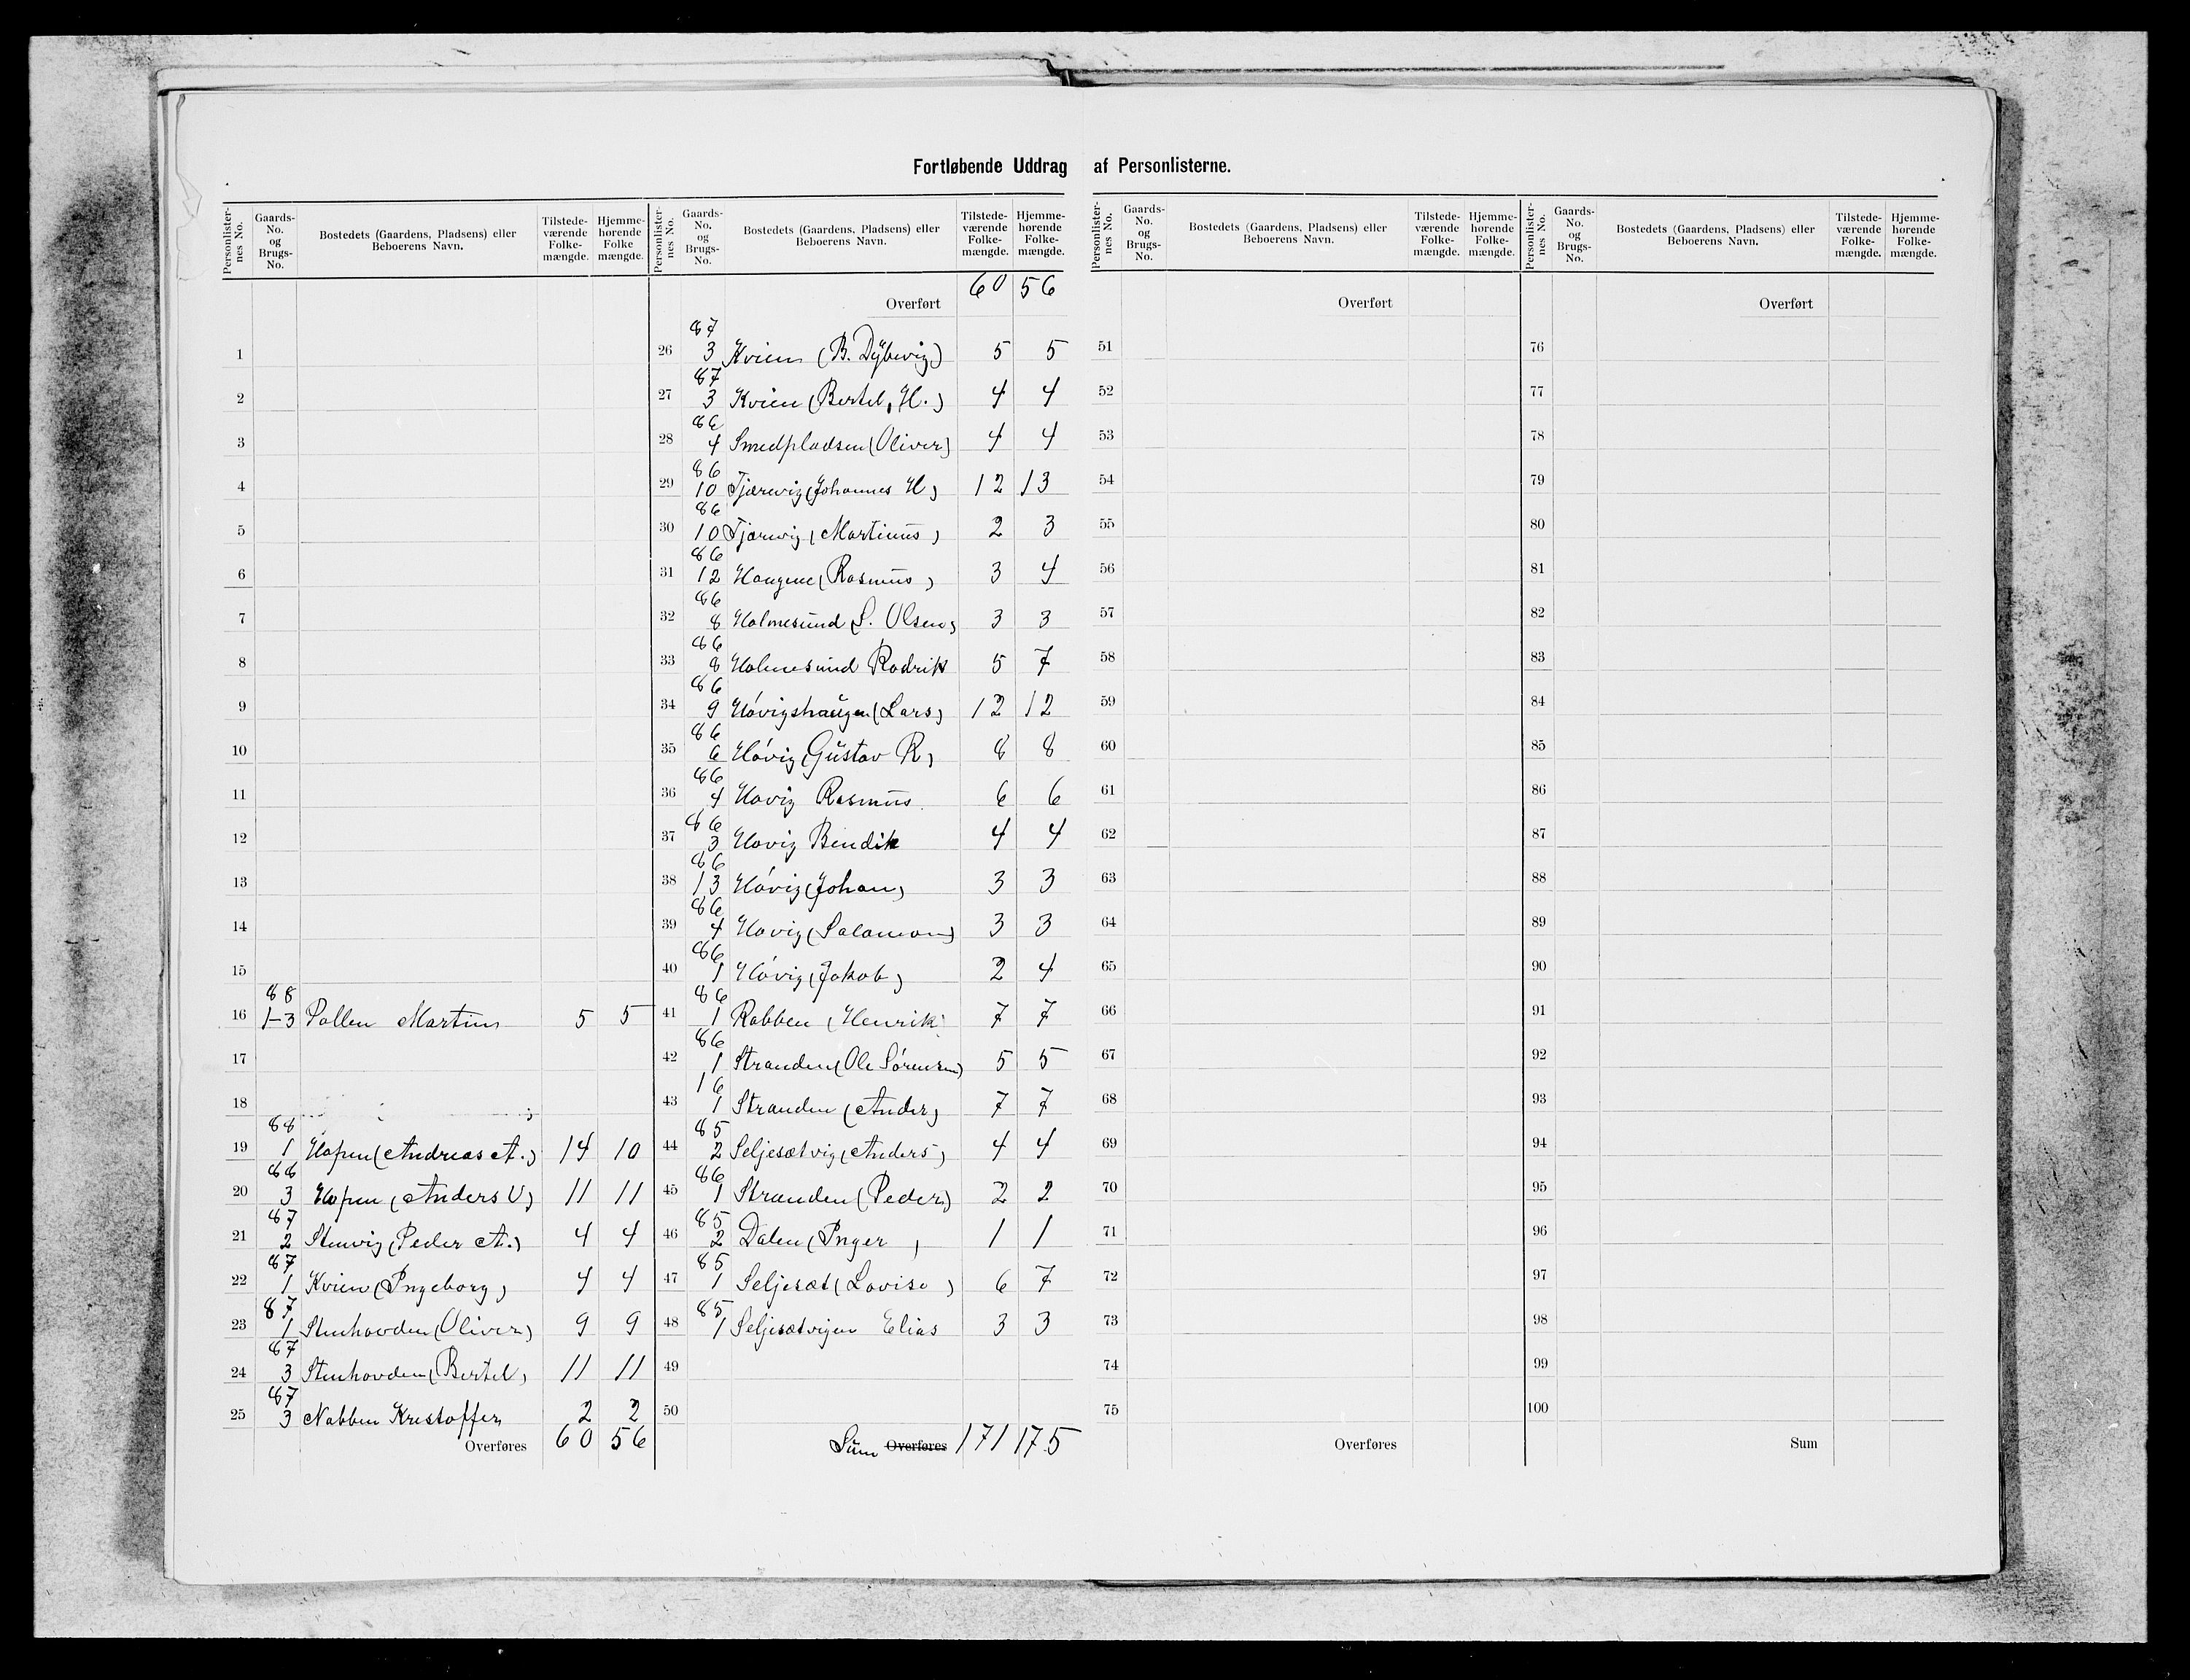 Fortløbende Uddrag af Personlisterne.
Personlister-nes No. | Gaards-No. og Brugs-No. | Bostedets (Gaardens, Pladsens) eller Beboerens Navn. | Tilstede-værende Folke-mængde. | Hjemme-hørende Folke mængde.
1
2
3
4
5
6
7
8
9
10
11
12
13
14
15
16 88 1-3 Pollen Martin 5 5
17
18
19 88 1 Hopen (Andreas A.) 14 10
20 88 3 Hopen (Anders O) 11 11
21 87 2 Stenvig (Peder A.) 4 4
22 87 1 Kvien (Ingeborg) 4 4
23 87 1 Stenhovden (Oliver) 9 9
24 87 3 Stenhovden (Bertel) 11 11
25 87 3 Nabben Kristoffer 2 2
Overføres 60 56
Personlister-nes No. | Gaards-No. og Brugs-No. | Bostedets (Gaardens, Pladsens) eller Beboerens Navn. | Tilstede-værende Folke-mængde. | Hjemme-hørende Folke-mængde.
Overført 60 56
26 87 3 Kvien (B. Dybevig) 5 5
27 87 3 Kvien (Bertel H.) 4 4
28 86 4 Smedpladsen (Oliver) 4 4
29 86 10 Tjærevig (Johannes H) 12 13
30 86 10 Tjærevig (Martinus) 2 3
31 86 12 Haugene (Rasmus) 3 4
32 86 8 Holmesund S. Olsen) 3 3
33 86 8 Holmesund Rodrik 5 7
34 86 9 Hovigshaugen (Lars) 12 12
35 86 6 Hovig (Gustav R) 8 8
36 86 4 Hovig Rasmus 6 6
37 86 3 Hovig Bendik 4 4
38 86 13 Hovig (Johan) 3 3
39 86 4 Hovig (Salamon) 3 3
40 86 1 Hovig (Jakob) 2 4
41 86 1 Rabben (Henrik) 7 7
42 86 1 Stranden (Ole Sörensen) 5 5
43 16 1 Stranden (Ander) 7 7
44 85 2 Seljesætvig (Anders) 4 4
45 86 1 Stranden (Peder) 2 2
46 85 2 Dalen (Inger) 1 1
47 85 1 Seljesæt (Lovise) 6 7
48 85 1 Seljesætvigen Elias 3 3
49
50
Sum Overføres 171 175
Personlister-nes No. | Gaards-No. og Brugs-No. | Bostedets (Gaardens, Pladsens) eller Beboerens Navn. | Tilstede-værende Folke-mængde. | Hjemme-hørende Folke-mængde.
Overført
51
52
53
54
55
56
57
58
59
60
61
62
63
64
65
66
67
68
69
70
71
72
73
74
75
Overføres
Personlister-nes No. | Gaards-No. og Brugs-No. | Bostedets (Gaardens, Pladsens) eller Beboerens Navn. | Tilstede-værende Folke-mængde. | Hjemme-hørende Folke-mængde.
Overført
76
77
78
79
80
81
82
83
84
85
86
87
88
89
90
91
92
93
94
95
96
97
98
99
100
Sum